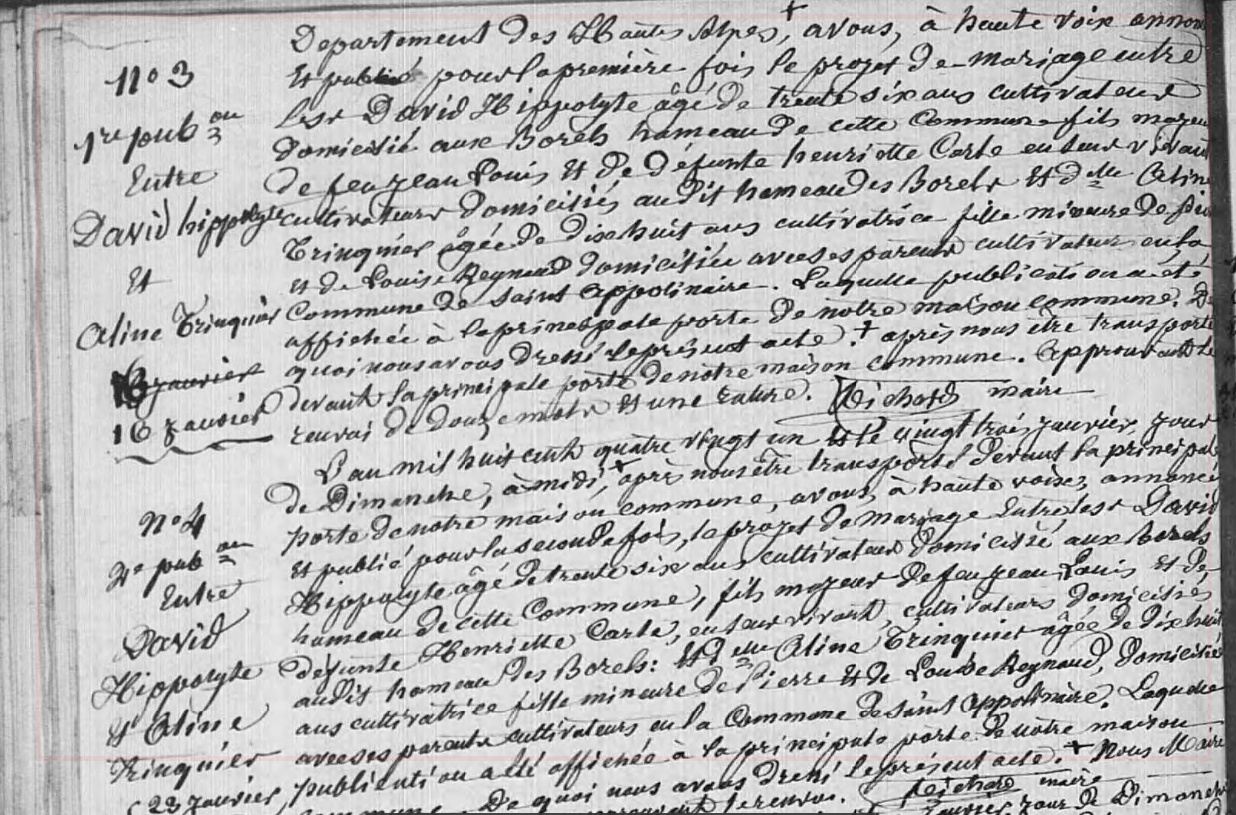 Departement des Hautes Alpes, + avons, à haute voix annon
N° 3
Et publié pour la première fois le projet de mariage entre
1re pubon
le sr David Hippolyte âgé de trente six ans cultivateur
domicilié aux Borels hameau de cette Commune fils majeur
Entre
de feu Jean Louis Et de défunte henriette Carle en leur vivant
David hippolyte
cultivateurs domiciliés au dit hameau des Borels Et dlle Aline
Trinquier âgée de dix huit ans cultivatrice fille mineure de
Et
et de Louise Reynaud domiciliée avec ses parents cultivateurs en la
Aline Trinquier
Commune de Saint Appolinaire. Laquelle publication a été
affichée à la principale porte de notre maison commune. De
16 janvier
quoi nous avons dressé le présent acte. + après nous être transporté
devant la principale porte de notre maison commune. Approuvant le
16 janvier
renvoi de douze mots Et une rature. Richard maire
L'an mil huit cent quatre vingt un Et le vingt trois janvier jour
de Dimanche, à midi, + après nous être transporté devant la principale
N° 4
porte de notre maison commune, avons, à haute voix, annoncé
2e pubon
Et publié pour la seconde fois, le projet de mariage Entre le sr David
Entre
Hippolyte âgé de trente six ans cultivateur domicilié aux Borels
David
hameau de cette Commune, fils majeur de feu Jean Louis Et de
Hippolyte
défunte Henriette Carle, en leur vivant, cultivateurs domiciliés
audit hameau des Borels: Et dlle Aline Trinquier âgée de dix huit
Et Aline
ans cultivatrice fille mineure de Pierre Et de Louise Reynaud, domiciliée
Trinquier
avec ses parents cultivateurs en la Commune de Saint Appolinaire. Laquelle
23 Janvier
publication a été affichée à la principale porte de notre maison
commune. De quoi nous avons dressé le présent acte. + Nous Maire
le renvoi. Richard maire
janvier jour de Dimanche